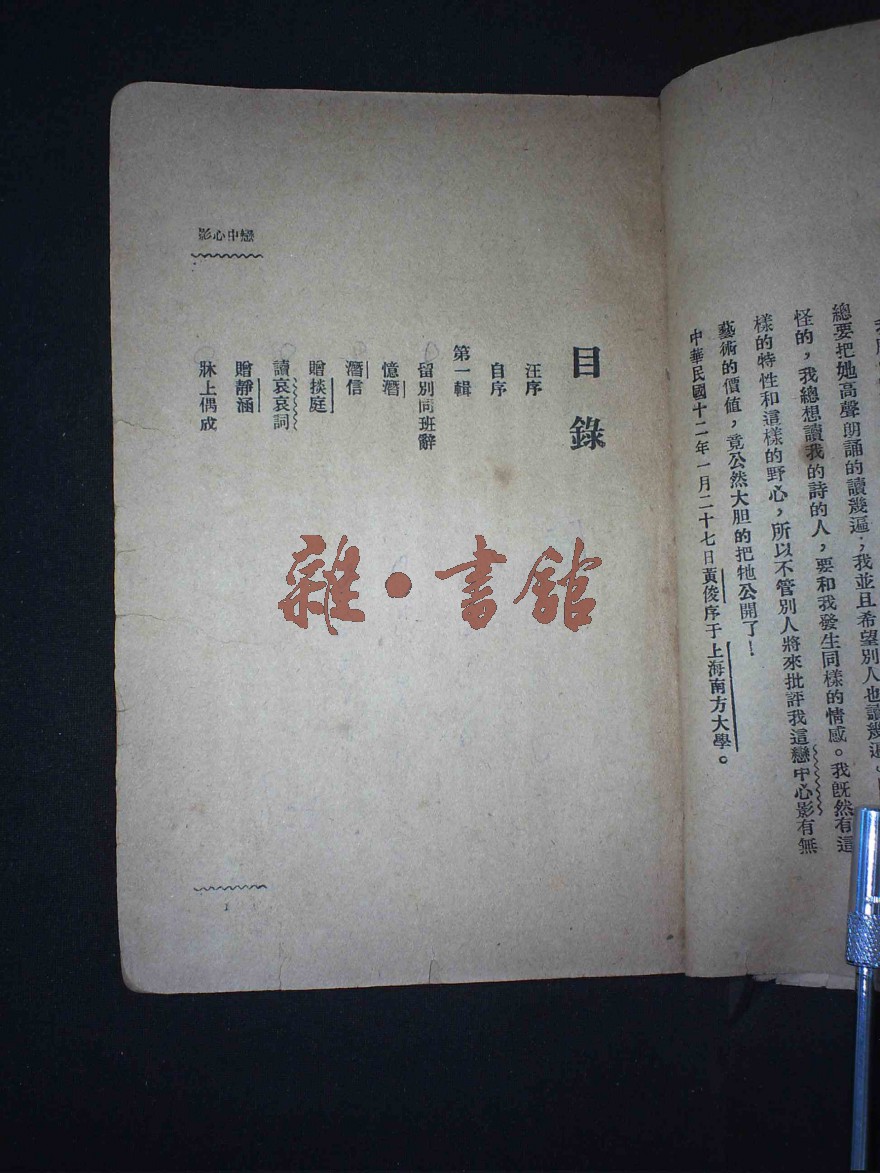 總要把她高聲朗誦的讀幾遍；我並且希望別人也讀幾遍。
怪的，我總想讀我的詩的人，要和我發生同樣的情感。我旣然有這
樣的特性和這樣的野心，所以不管別人將來批評我這戀中心影有無
藝術的價值，竟公然大胆的把牠公開了！
中華民國十二年一月二十七日黃俊序于上海南方大學。
戀中心影
目錄
汪序
自序
第一輯
留別同班辭
憶潛
潛信
贈掞庭
讀哀哀詞
贈靜涵
牀上偶成
1
雜·書館